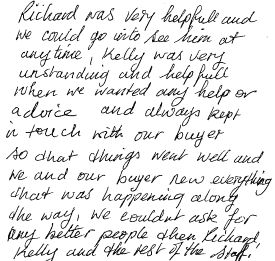 Richard was very helpfull and
we could go into see him at
anytime, Kelly was very
unstanding and helpfull
when we wanted any help or
advice and always kept
in touch with our buyer
so that things went well and
we and our buyer new everything
that was happening along
the way, we couldnt ask for
any better people then Richard,
Kelly and the rest of the staff.